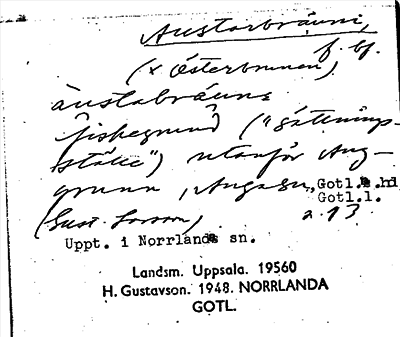 Austerbräuni,
f. bf.
(x Österbrunnen)
äustabräune
fiskegrund ("gättnings-
ställe") utanför Aug-
grunn, Gotl. hd
Gotl.l.
(Gust. Larsson) 2.13
Uppt. i Norrlanda sn.
Landsm. Uppsala. 19560
H. Gustavson. 1948. NORRLANDA
GOTL.